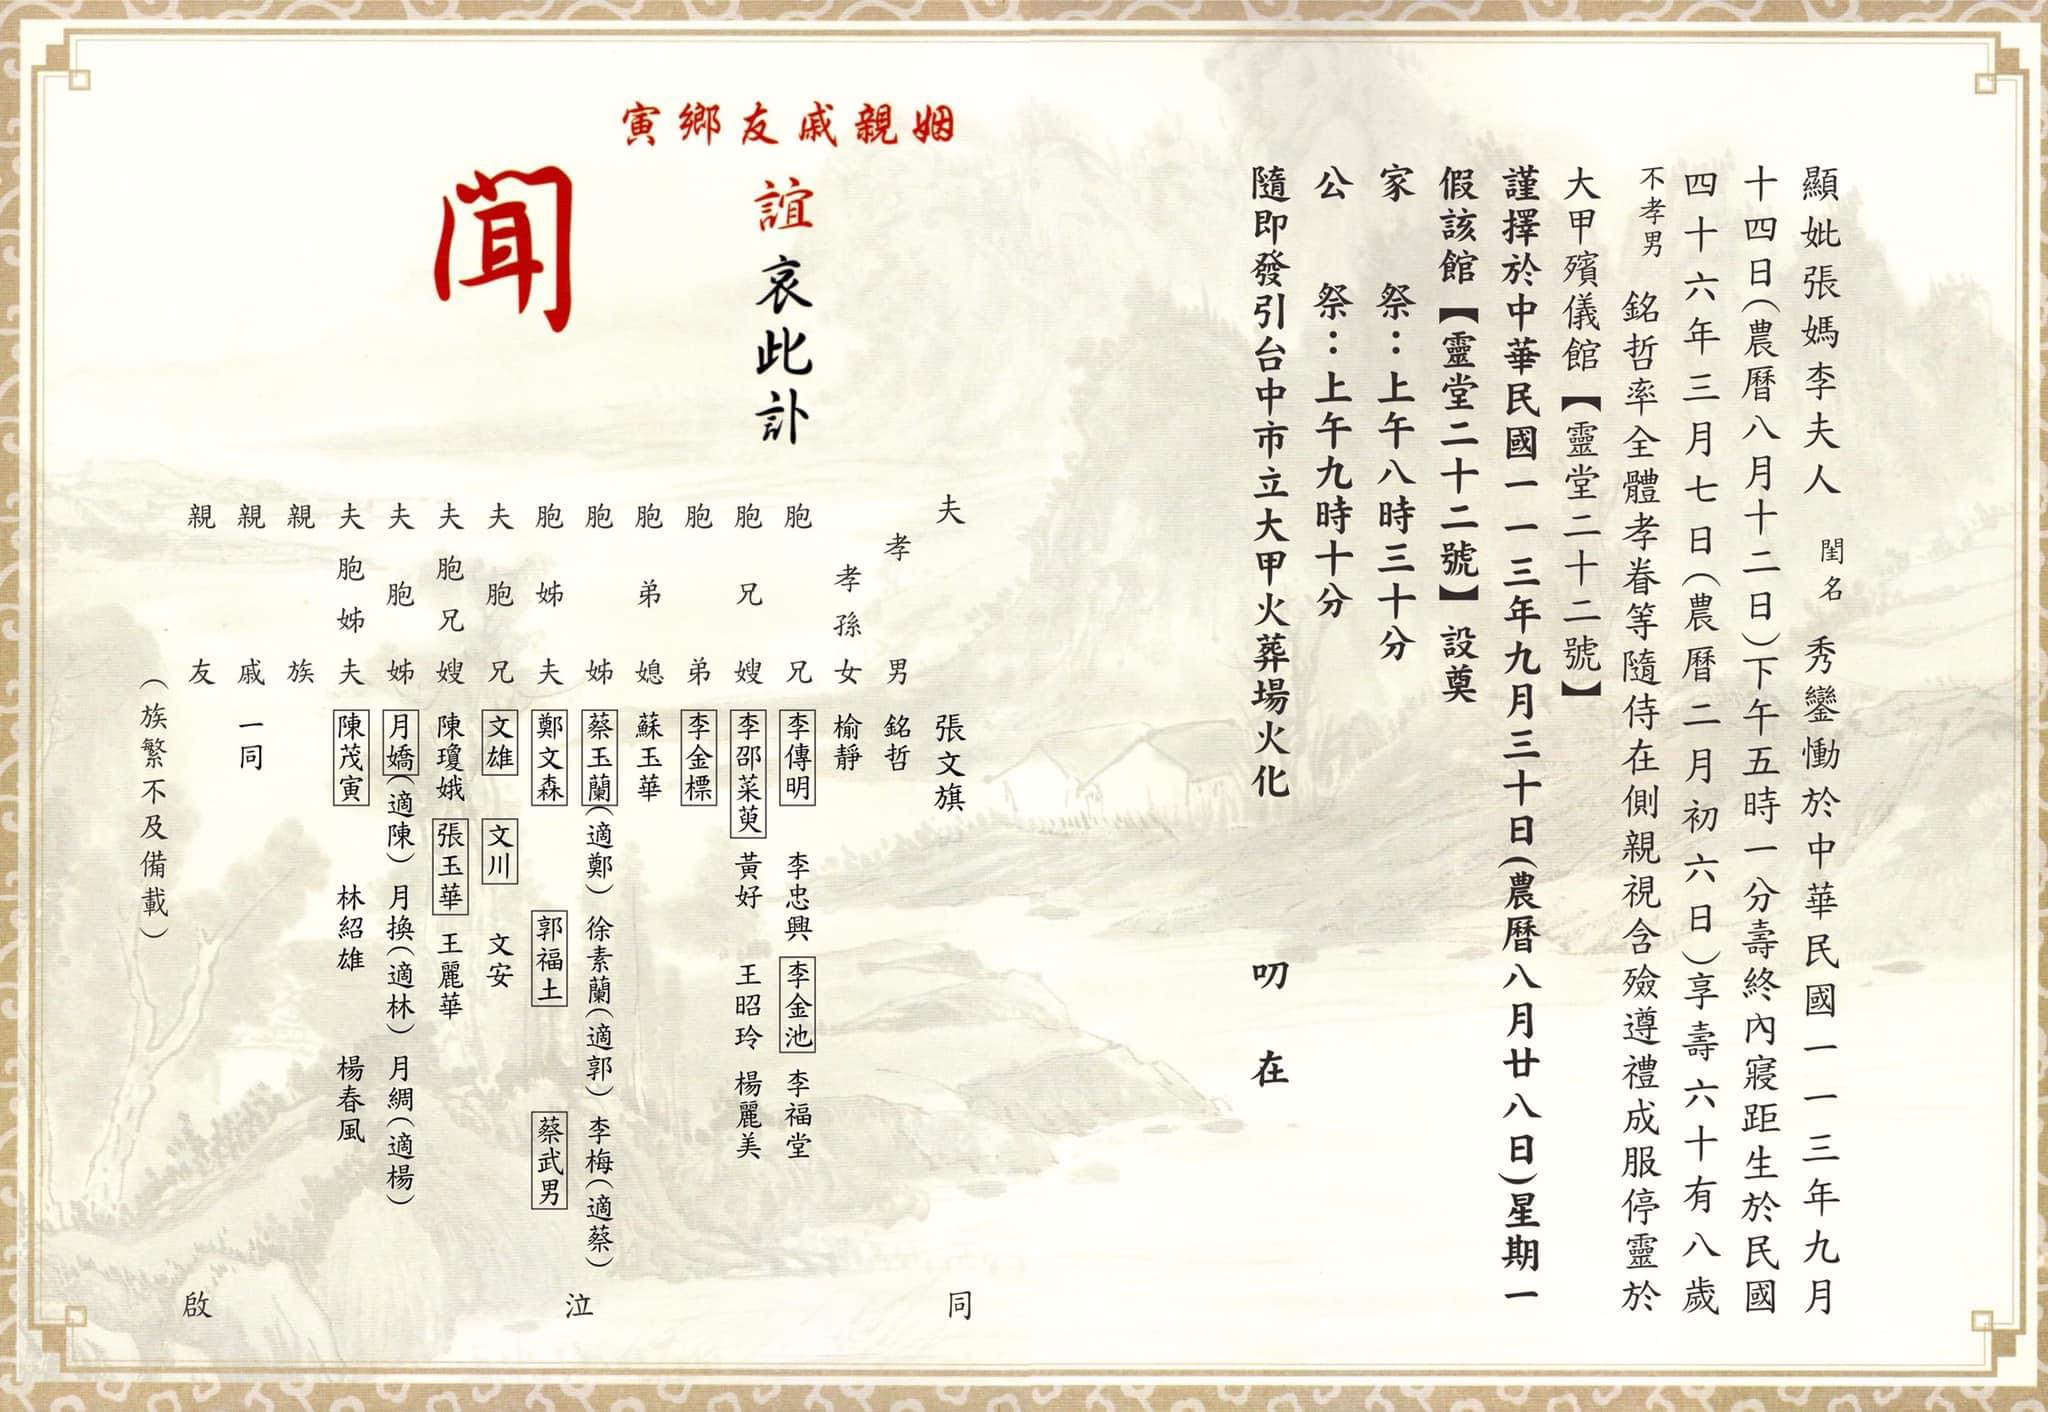 顯妣張媽李夫人 閨名 秀鑾慟於中華民國一一三年九月
十四日(農曆八月十二日)下午五時一分壽終內寢距生於民國
四十六年三月七日(農曆二月初六日)享壽六十有八歲
不孝男 銘哲率全體孝眷等隨侍在側親視含殮遵禮成服停靈於
大甲殯儀館【靈堂二十二號】
謹擇於中華民國一一三年九月三十日(農曆八月廿八日)星期一
假該館【靈堂二十二號】設奠
家 祭：上午八時三十分
公 祭：上午九時十分
隨即發引台中市立大甲火葬場火化 叨 在
姻親戚友鄉寅
誼哀此訃
聞
夫 張文旗
孝男 銘哲
孝孫女 榆靜
胞兄 李傳明 李忠興 李金池 李福堂
胞兄嫂 李邵菜萸 黃好 王昭玲 楊麗美
胞弟 李金標
胞弟媳 蘇玉華
胞姊 蔡玉蘭(適鄭) 徐素蘭(適郭) 李梅(適蔡)
胞姊夫 鄭文森 郭福土 蔡武男
夫胞兄 文雄 文川 文安
夫胞兄嫂 陳瓊娥 張玉華 王麗華
夫胞姊 月嬌(適陳) 月換(適林) 月綢(適楊)
夫胞姊夫 陳茂寅 林紹雄 楊春風
親族
親戚 一同
親友
(族繁不及備載)
同 泣 啟